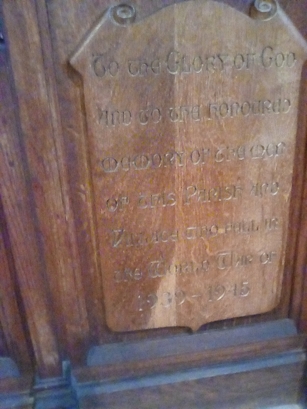 To the Glory of God
And to the honoured
memory of the men
of this Parish and
Village who fell in
the World War of
1939-1945